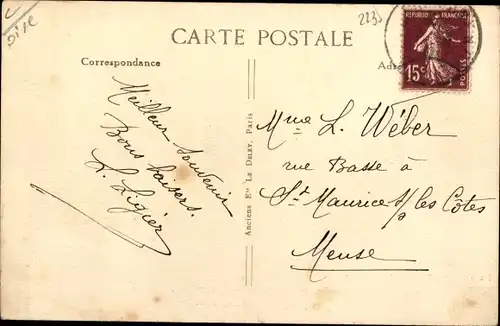 2235
CARTE POSTALE
REPUBLIQUE FRANÇAISE
15c
POSTES
Correspondance
Meilleur souvenir
Bons baisers.
L. Ligier
Anciens Ets Le Deley, Paris
Mme L. Wéber
rue Basse à
St Maurice s/s les Côtes
Meuse